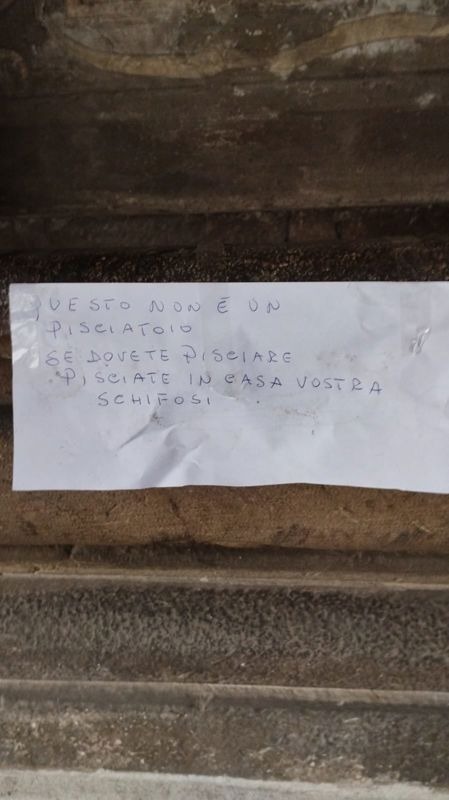 QUESTO NON È UN
PISCIATOIO
SE DOVETE PISCIARE
PISCIATE IN CASA VOSTRA
SCHIFOSI